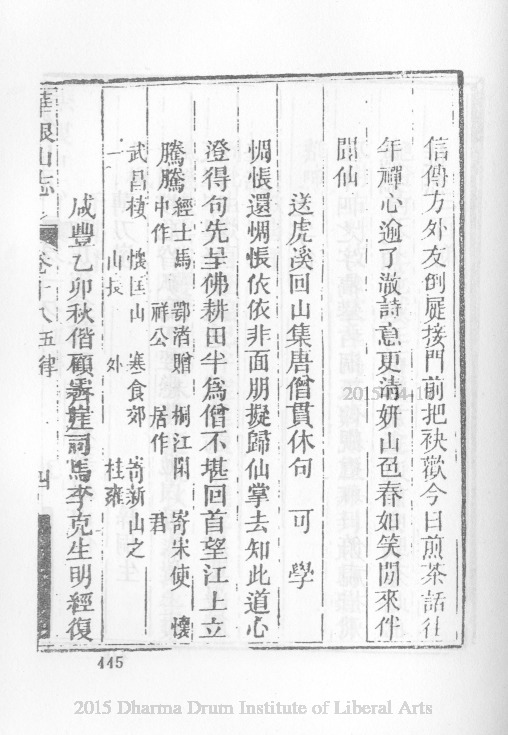 信傳方外友倒屣接門前把袂歡今日煎茶話往
年禪心逾了澈詩意更清妍山色春如笑閒來伴
閒仙
送虎溪回山集唐僧貫休句 可學
惆悵還惆悵依依非面朋擬歸仙掌去知此道心
澄得句先呈佛耕田半為僧不堪回首望江上立
騰騰 經士馬 鄂渚贈 桐江閑 寄宋使 懷
中作 祥公 居作 君
武昌棲 懷匡山 寒食郊 寄新山之
一 山長 外 桂雍
咸豐乙卯秋偕顧霽崖司馬李克生明經復
華銀山志 卷十八五律 四
115
2015 Dharma Drum Institute of Liberal Arts